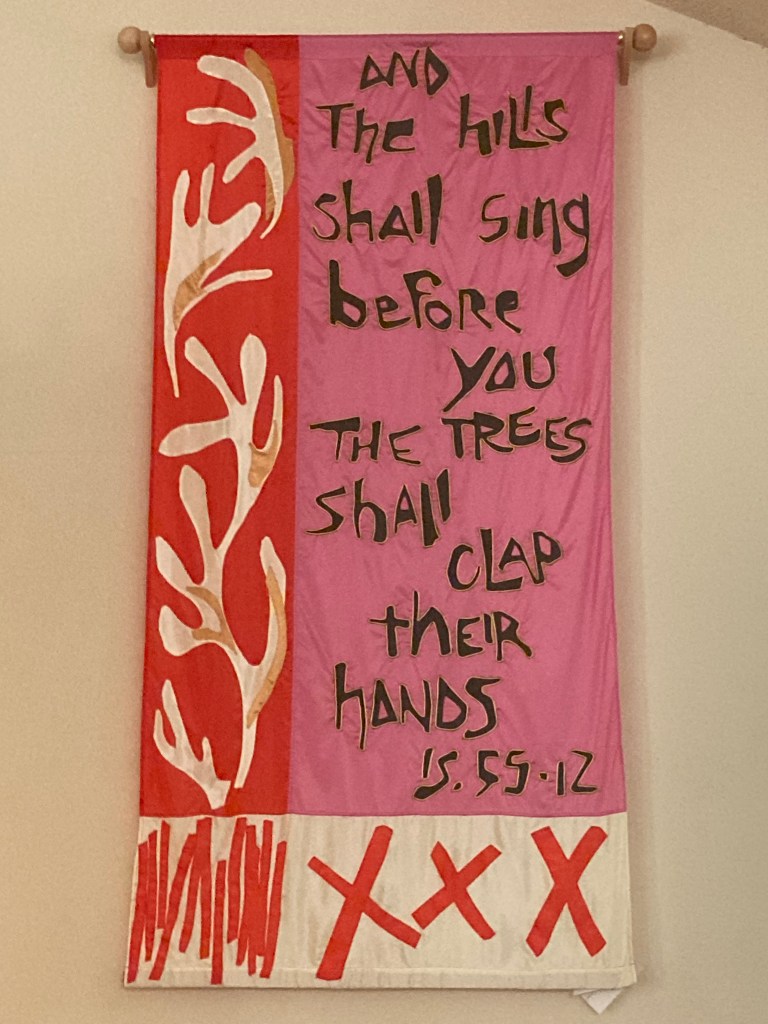 AND
The hills
Shall Sing
before
YOU
THE TREES
Shall
CLAP
theIR
hANDS
IS. 55.12
XXX